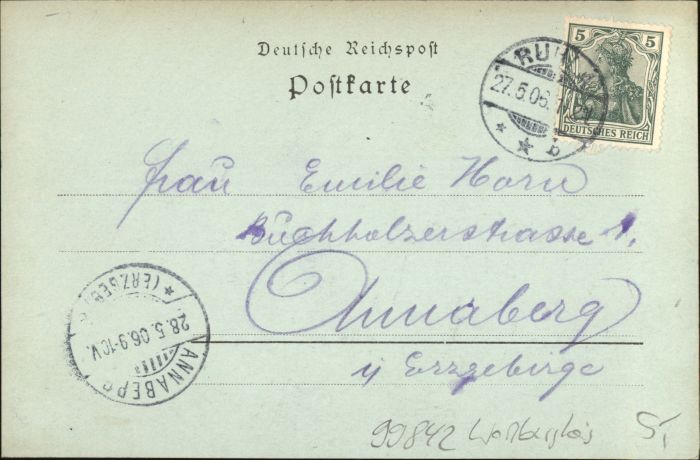 Deutsche Reichspost
Postkarte
5 5
DEUTSCHES REICH
27.5.06.
b
Frau Emilie Horn
Buchholzerstrasse 1.
Annaberg
Erzgebirge
ANNABERG
28.5.06.9-10V.
* (ERZGEB.)
99842
5,